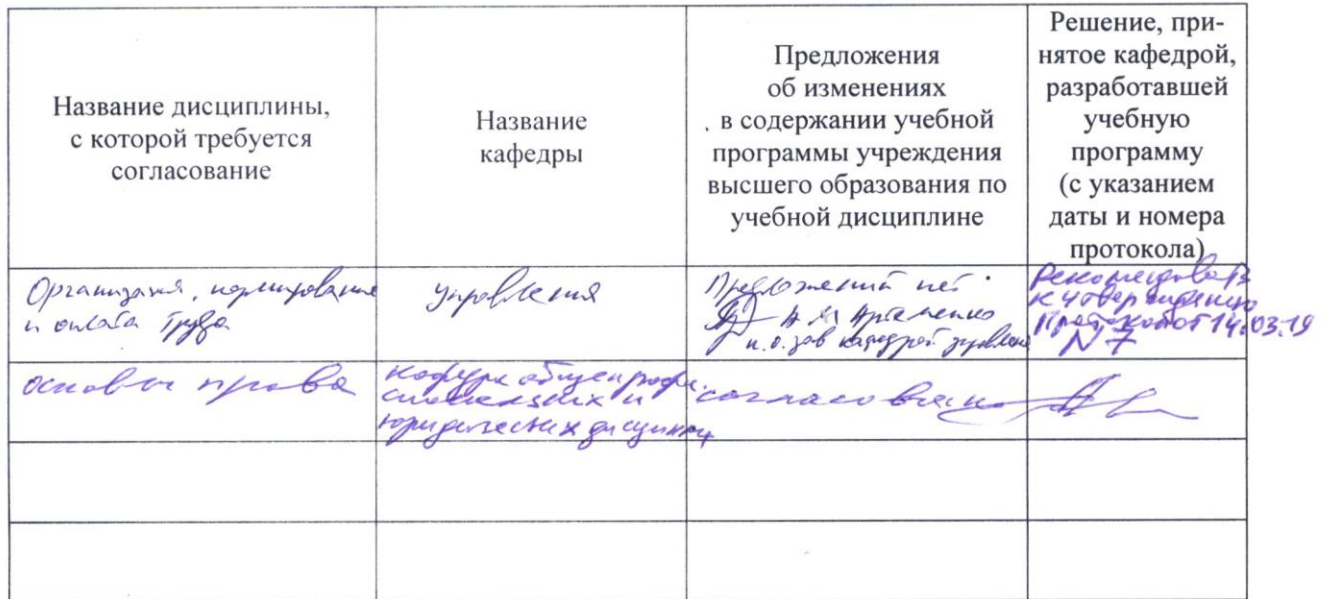 Название дисциплины,
с которой требуется
согласование
Название
кафедры
Предложения
об изменениях
в содержании учебной
программы учреждения
высшего образования по
учебной дисциплине
Решение, при-
нятое кафедрой,
разработавшей
учебную
программу
(с указанием
даты и номера
протокола)
Организация, нормирование
и оплата труда
управления
Предложений нет
А М Артеменко
и.о. зав кафедрой
Рекомендовать
к утверждению
Протокол от 14.03.19
N 7
основы права
кафедра
и
юридических дисциплин
согласовано